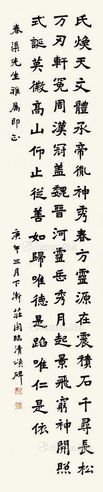 氏煥天文體承帝胤神秀春方靈源在震積石千尋長松
万刃軒冕周漢冠蓋魏晉河靈岳秀月起景飛窮神開照
式誕英徽高山仰止從善如歸唯德是蹈唯仁是依
春渠先生雅屬即正
庚午三月下澣莊閑臨清頌碑